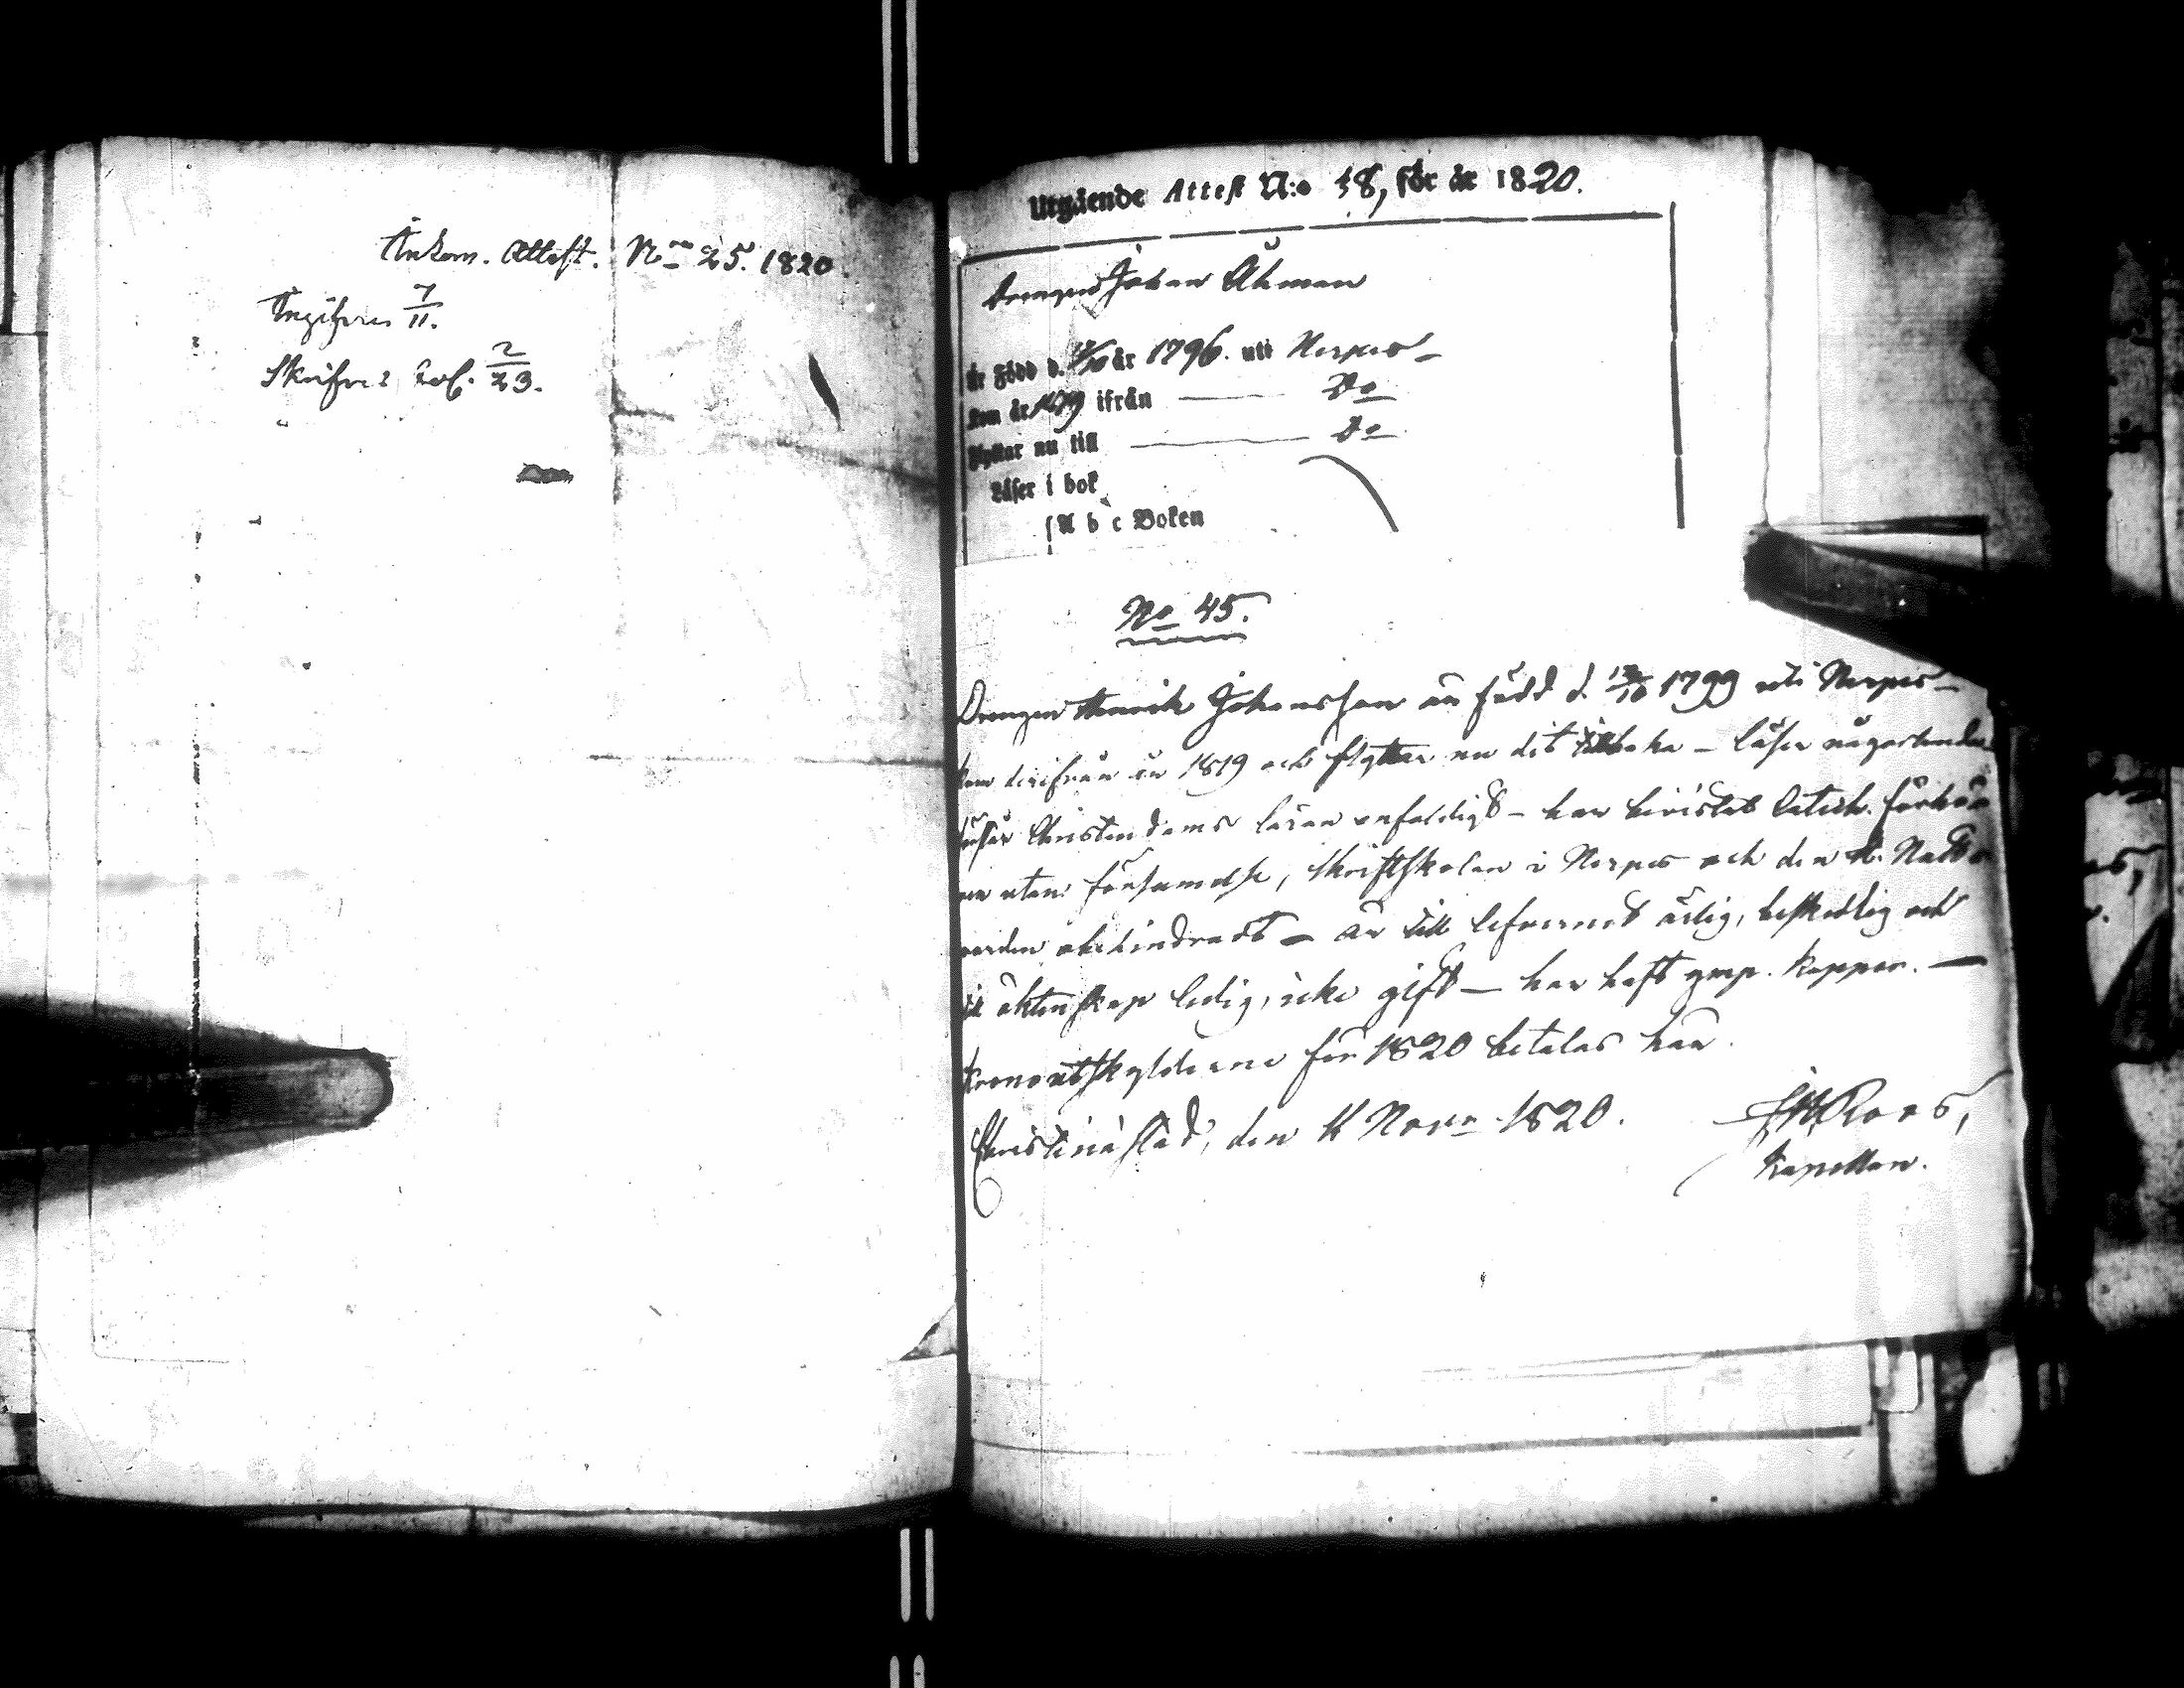 Ankom. Attest. N:ro 25. 1820.
Ingifven 7/11.
Skrifves fol. 2/23.
Utgående Attest N:o 48, för år 1820.
Drengen Johan Åhman
Är Född d. år 1796. uti Nerpes –
kom år 1819 ifrån — Do
Flyttar nu till — Do
Läser i bok
A b c Boken
No 45.
Drengen Henrik Johansson är född d. 1799 uti Nerpes –
kom derifrån år 1819 och flyttar nu dit tillbaka – läser någorlunda
Christendoms läran enfaldigt – har bivistat Catech. förhör
utan försummelse, skriftskolan i Nerpes och den H. Natt-
varden obehindradt – är till lefvernet ärlig, beskedlig och
till äktenskap ledig, icke gift – har haft ymp. koppor. —
Kronoutskylderne för 1820 betalas här.
Christinæstad, den 4 Nov:r 1820. Roos,
Kapellan.